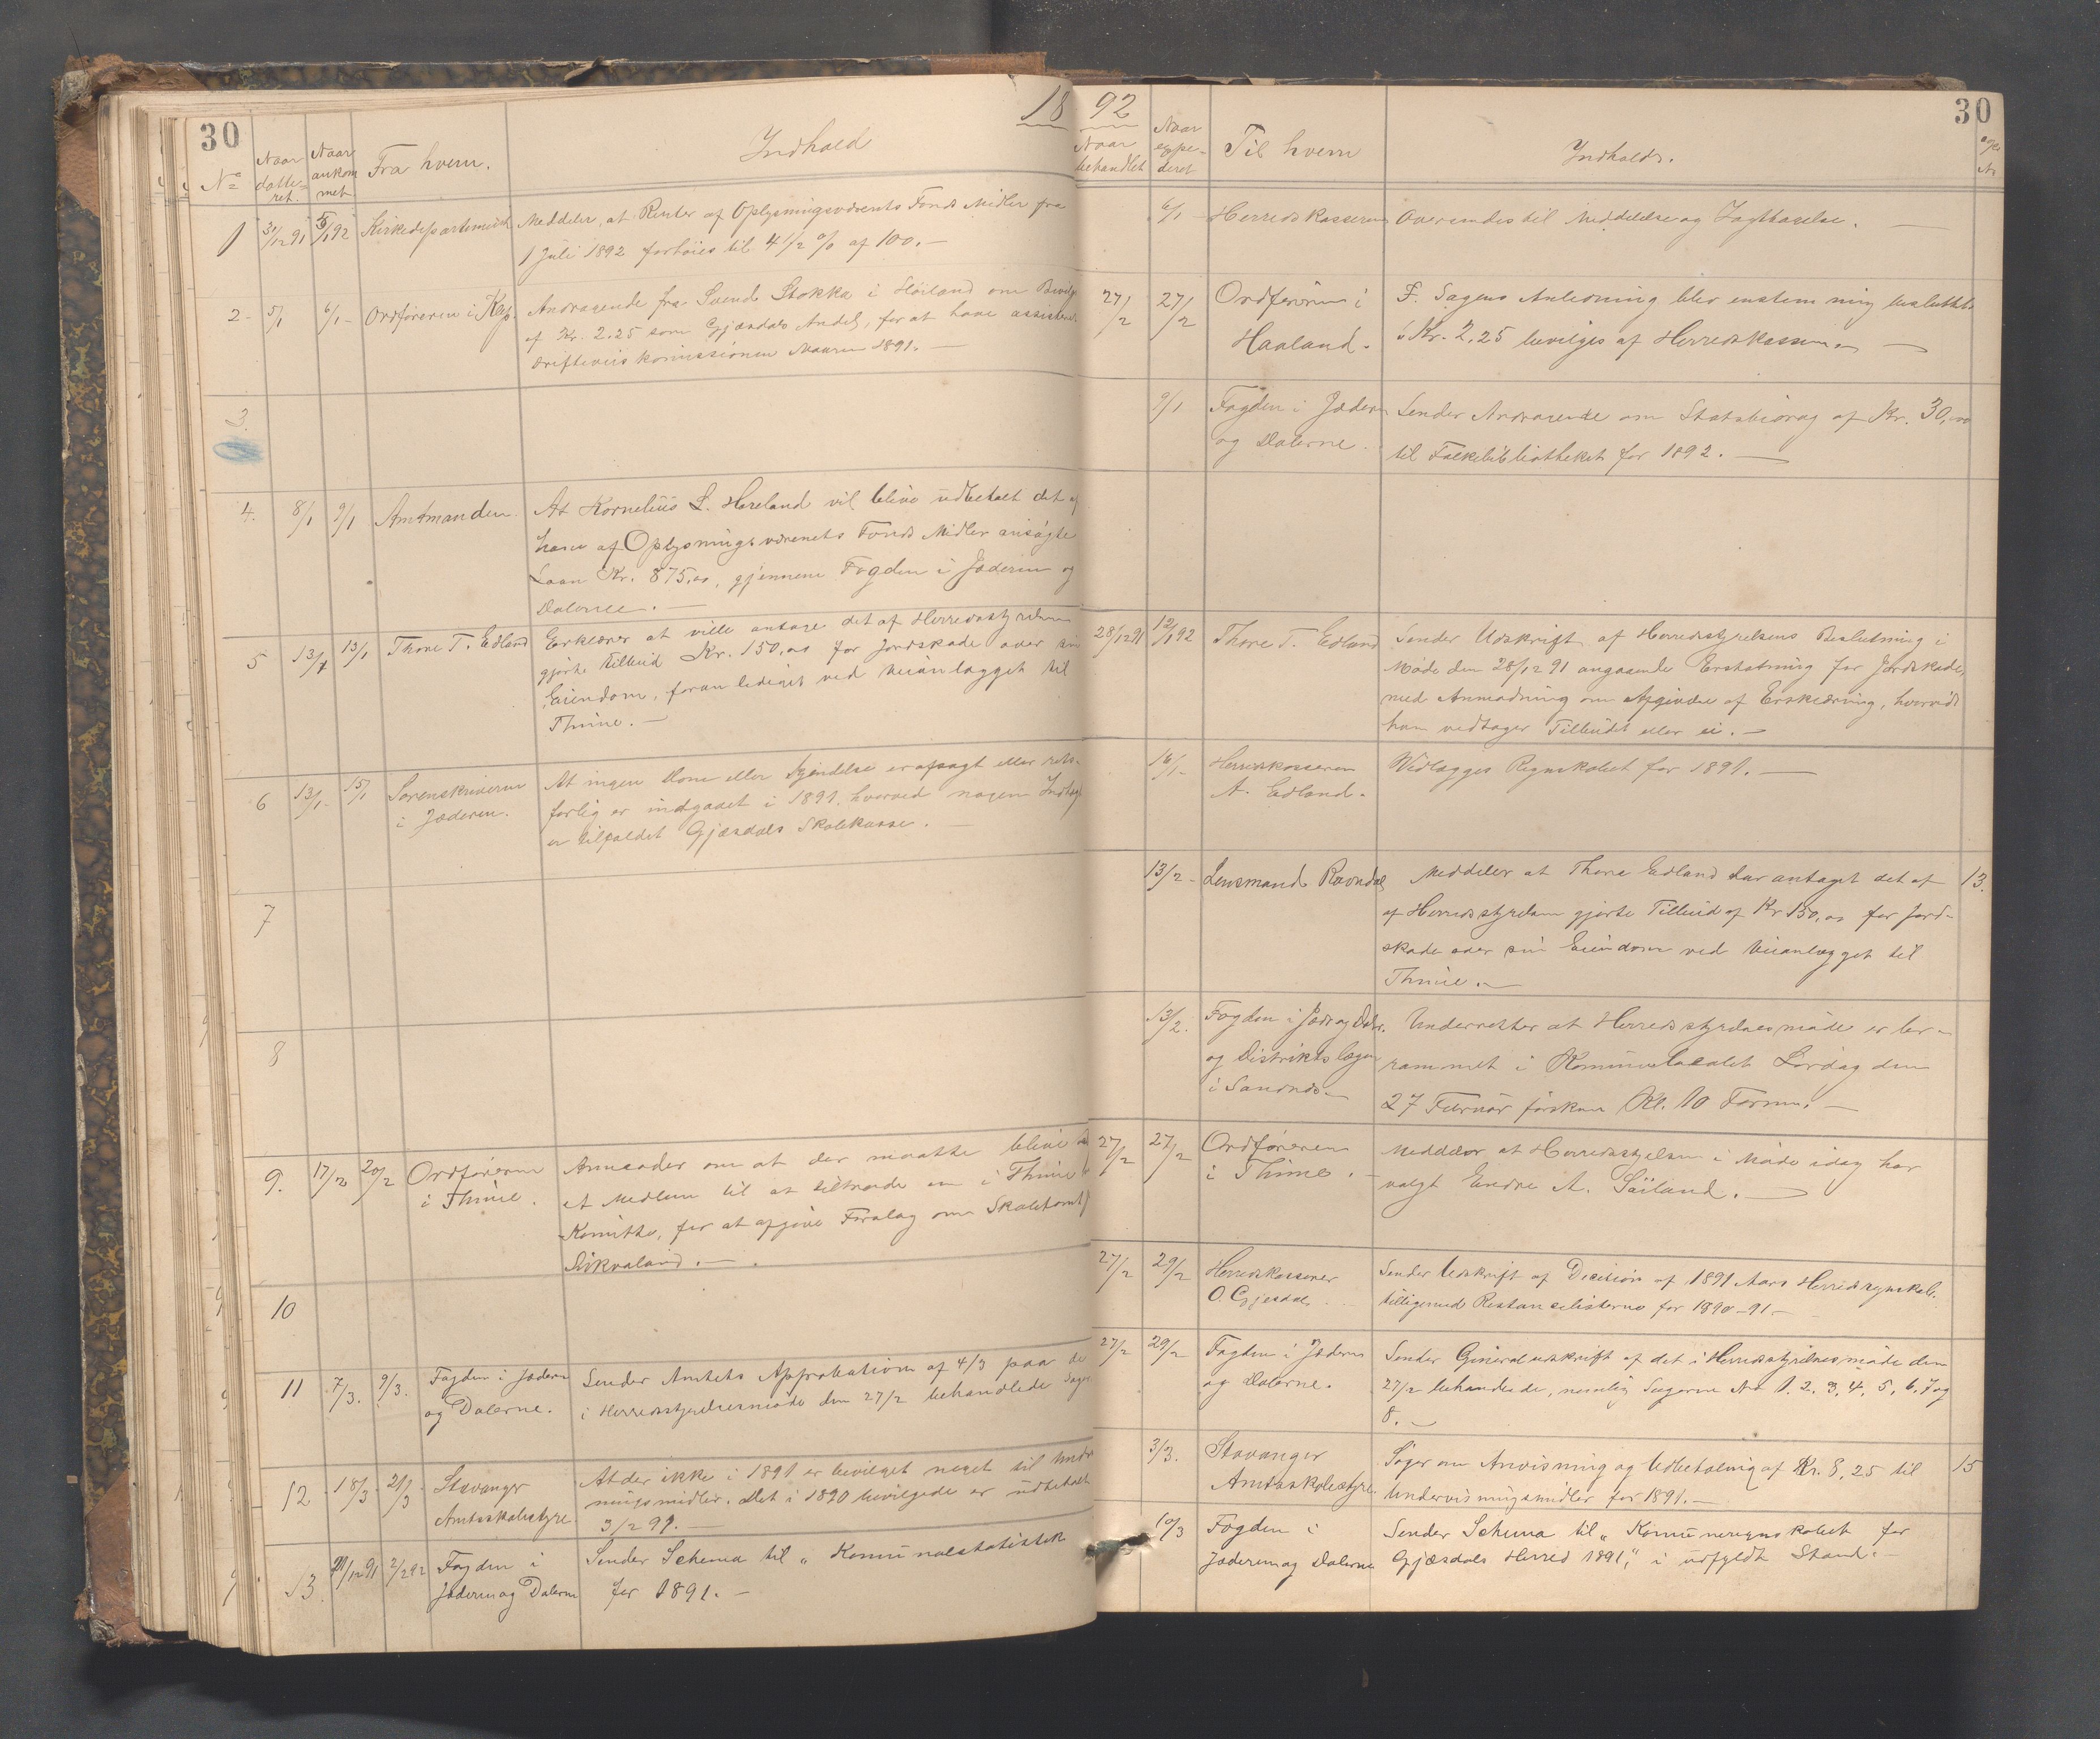 30
18
No
Naar
datte-
ret.
Naar
ankom
met
Fra hvem.
Indhold
1 31/12 91 5/1 92 Kirkedepartementet Meddeler, at Renter af Oplysningsvæsenets Fonds Midler fra
1 Juli 1892 forhöies til 4 1/2 % af 100. —
2 5/1 6/1 Ordföreren i Klep. Andragende fra Svend Stokka i Höiland om
af Kr. 2.25 som Gjæsdals Andel, for at have
1891. —
3.
4. 8/1 9/1 Amtmanden. At Kornelius L. Hareland vil blive udbetalt det af
ham af Oplysningsvæsenets Fonds Midler ansögte
Laan Kr. 875,00, gjennem Fogden i Jæderen og
Dalerne. —
5 13/1 13/1 Thore T. Edland Erklærer at ville antage det af Herredsstyrelsen
gjorte Tilbud Kr. 150,00 for Jordskade over sin
Eiendom, foranlediget ved Veianlægget til
Thime. —
6 13/1 15/1 Sorenskriveren
i Jæderen.
At ingen Dom eller Kjendelse er afsagt eller rets-
forlig er indgaaet i 1891, hvorved nogen Indtægt
er tilfaldet Gjæsdals Skolekasse. —
7
8
9. 17/2 20/2 Ordföreren
i Thime.
Anmoder om at der maatte blive
et Medlem til at tiltræde en i Thime
Komitte, for at afgive Forslag om Skoletomt
10
11 7/3. 9/3. Fogden i Jæderen
og Dalerne.
Sender Amtets Approbation af 4/3 paa de
i Herredsstyrelsesmöde den 27/2 behandlede Sager
12 18/3 21/3 Stavanger
Amtsskolestyre
At der ikke i 1891 er bevilget noget til Under
ningsmidler. Det i 1890 bevilgede er udbetalt
3/2 91. —
13 12 91 2/2 92 Fogden i
Jæderen og Dalerne
Sender Schema til „ Komunalstatistik
for 1891. —
92
30
Naar
behandlet
Naar
expe-
deret
Til hvem
Indholds.
No
6/1 Herredskasseren Oversendes til Meddelelse og Iagttagelse. —
27/2 27/2 Ordföreren i
Haaland.
F. Sagens Anledning blev enstemmig besluttet
Kr. 2.25 bevilges af Herredskassen. —
9/1 Fogden i Jæderen
og Dalerne.
Sender Andragende om Statsbidrag af Kr. 30,00
til Folkebibliotheket for 1892. —
28/12 91 12/1 92 Thore T. Edland Sender Udskrift af Herredsstyrelsens Beslutning i
Möde den 28/12 91 angaaende Erstatning for Jordskade,
med Anmodning om Afgivelse af Erklæring, hvorvidt
han vedtager Tilbudet eller ei. —
16/1 Herredskasseren
A. Edland.
Vedlægges Regnskabet for 1891. —
13/2 Lensmand Ravndal Meddeler at Thore Edland har antaget det af 13.
af Herredsstyrelsen gjorte Tilbud af Kr 150,00 for Jord-
skade over sin Eiendom ved Veianlægget til
Thime. —
13/2. Fogden i Jæd og Daler.
og Distriktslægen
i Sandnes. —
Underretter at Herredsstyrelsesmöde er be-
rammet i Komunelocalet Lördag den
27 Februar förstk Kl. 10 Form. —
27/2 27/2 Ordföreren
i Thime.
Meddeler at Herredsstyrelsen i Möde idag har
valgt Endre A. Söiland. —
27/2 29/2 Herredskasserer
O. Gjesdal
Sender Udskrift af Decision af 1891 Aars Herredsregnskab.
tilligemed Restanselisterne for 1890-91. —
27/2 29/2 Fogden i Jæderen
og Dalerne.
Sender Generaludskrift af det i Herredsstyrelsesmöde den
27/2 behandlede, nemlig Sagerne No 1. 2. 3. 4. 5. 6. 7 og
8. —
3/3. Stavanger
Amtsskolestyre.
Söger om Anvisning og Udbetaling af Kr. 8,25 til 15
Undervisningsmidler for 1891. —
10/3 Fogden i
Jæderen og Dalerne
Sender Schema til „ Komuneregnskabet for
Gjæsdals Herred 1891", i udfyldt Stand. —